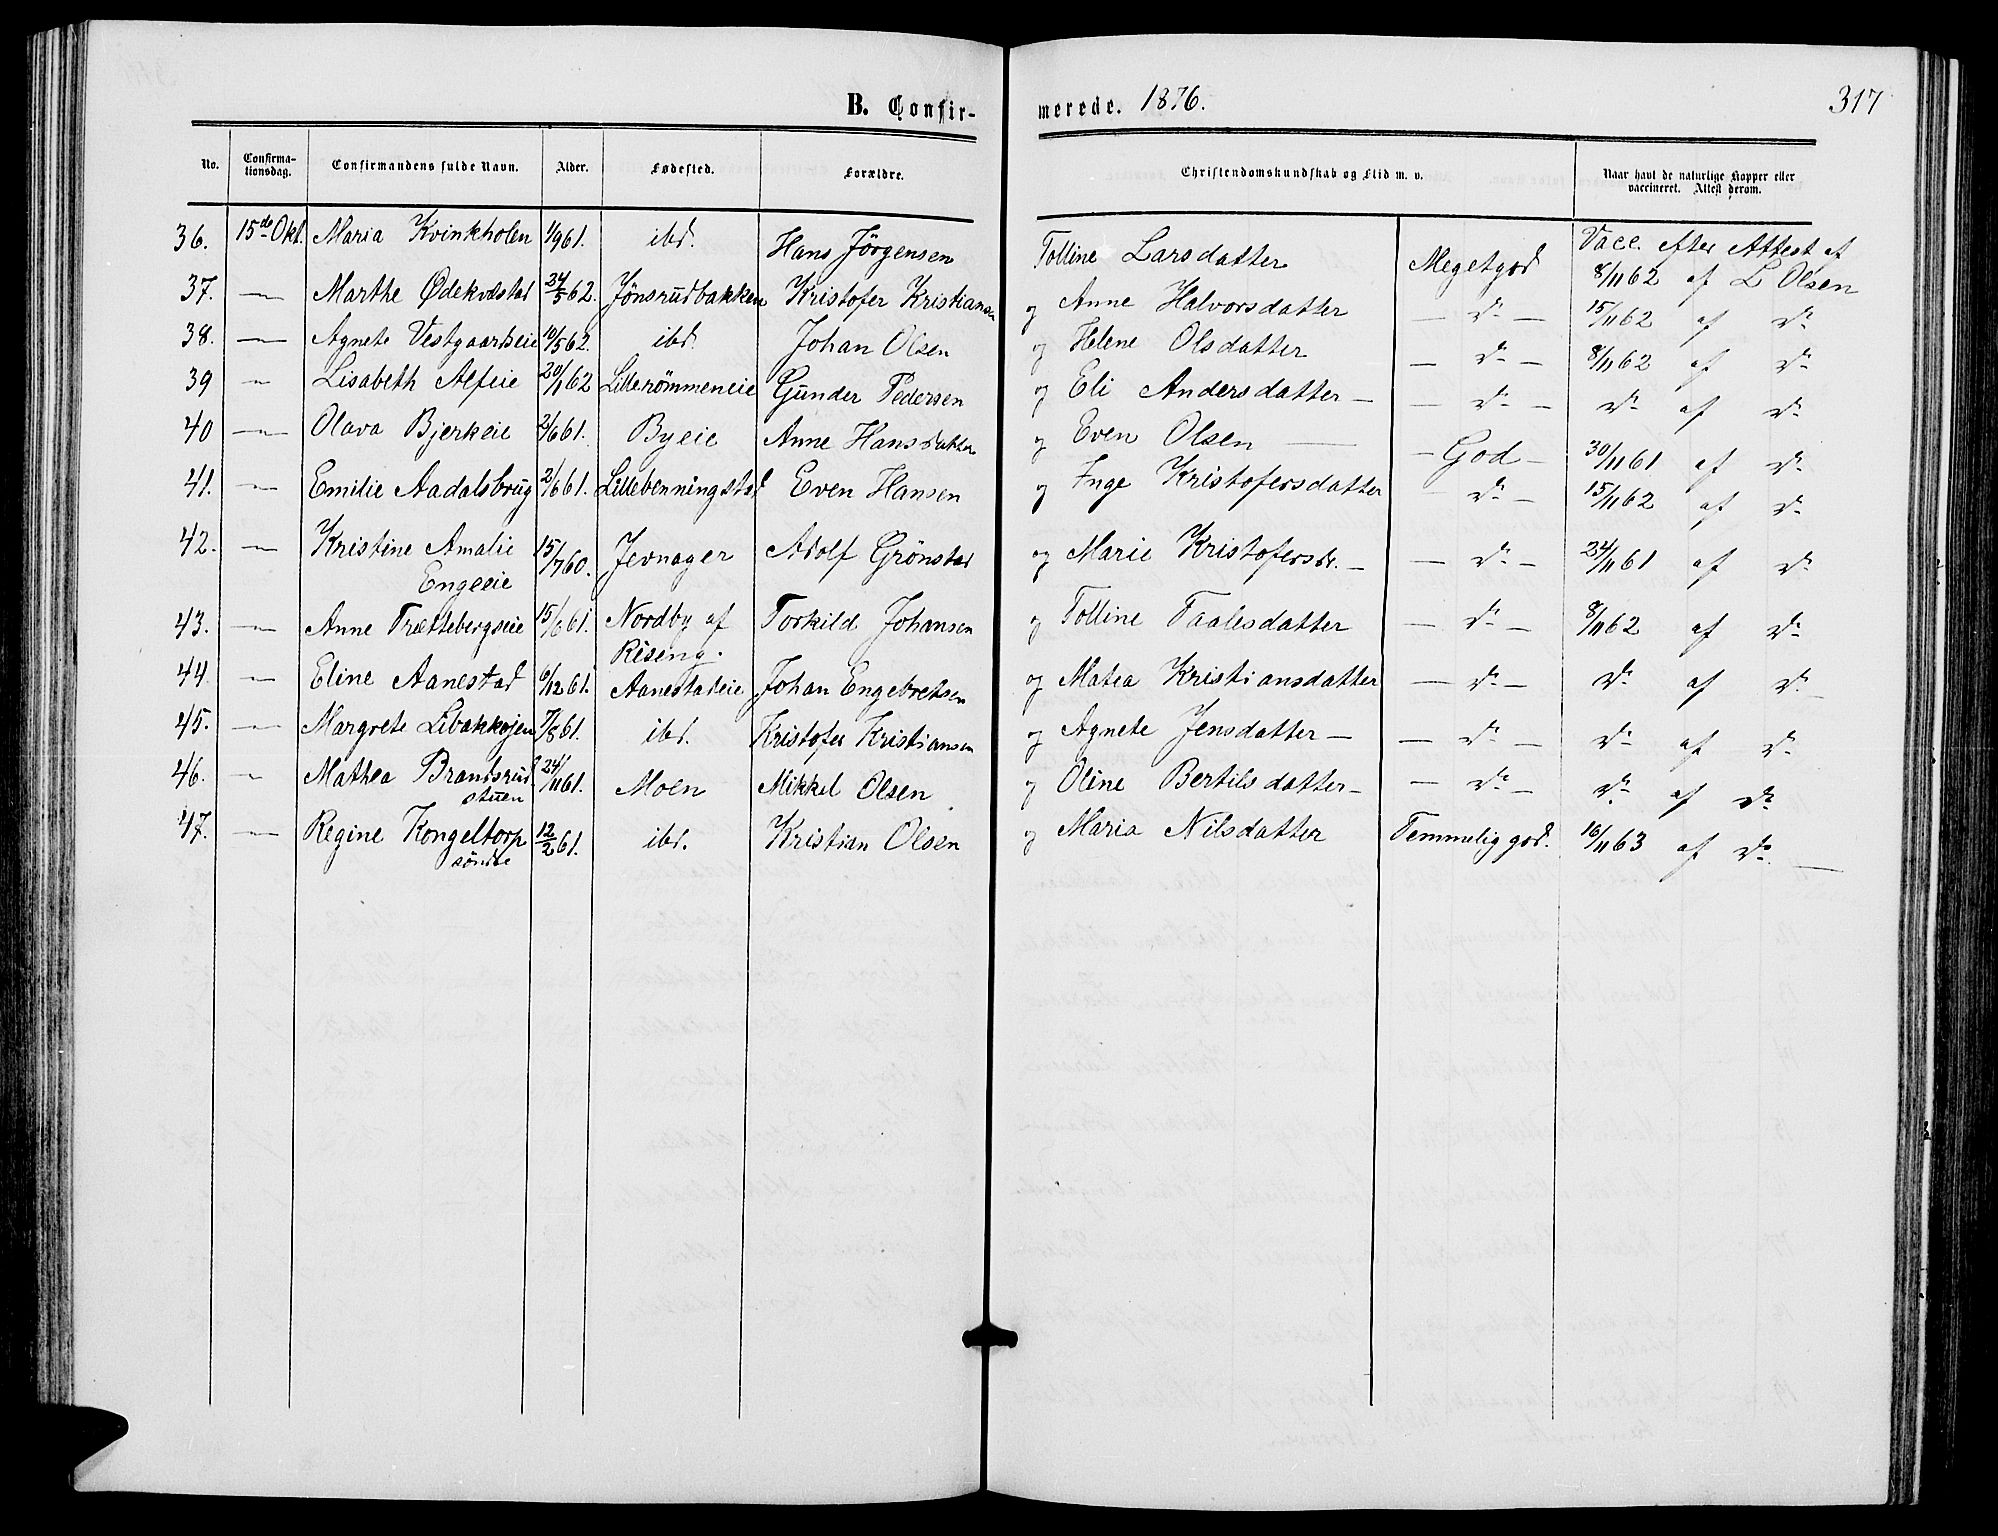 B. Confir-
merede. 1876.
317
No. Confirma-tionsdag. Confirmandens fulde Navn. Alder. Fødested. Forældre. Christendomskundskab og Flid m. v. Naar havt de naturlige Kopper eller vaccineret. Attest derom.
36. 15de Okt. Maria Kvinkholen 1/9 61. ibd. Hans Jörgensen Tolline Larsdatter Megetgod Vacc. efter Attest af 8/11 62 af L Olsen
37. —〃— Marthe Ødekvæstad 24/5 62. Jönsrudbakken Kristofer Kristiansen og Anne Halvorsdatter — do — 15/11 62 af do
38. —〃— Agnete Vestgaardeie 10/5 62. ibd. Johan Olsen og Helene Olsdatter — do — 8/11 62 af do
39 —〃— Lisabeth Alfeie 20/11 62 Lillerömmeneie Gunder Pedersen og Eli Andersdatter — — do — do af do
40 —〃— Olava Bjerkeie 2/6 61. Byeie Anne Hansdatter og Even Olsen — — God — 30/11 61 af do
41. —〃— Emilie Aadalsbrug 2/6 61. Lillebenningstad Even Hansen og Inge Kristofersdatter — do — 15/11 62 af do
42. —〃— Kristine Amalie 15/7 60. Jevnager Adolf Grönstad og Marie Kristofersdr. — — do — 24/11 61 af do
Engeeie
43. —〃— Anne Trættebergseie 15/6 61. Nordby af Torkild Johansen og Tolline Paalesdatter — do — 8/11 62 af do
Riseng.
44 —〃— Eline Aanestad 6/12 61. Aanestadeie Johan Engebretsen og Matea Kristiansdatter — do — do af do
45. —〃— Margrete Libakkojen 7/8 61. ibd. Kristofer Kristiansen og Agnete Jensdatter — — do — do af do
46. —〃— Mathea Brandsrud 24/11 61. Moen Mikkel Olsen og Oline Bertilsdatter — — do — do af do
stuen
47. —〃— Regine Kongeltorp 12/2 61. ibd. Kristian Olsen og Maria Nilsdatter Temmelig god. 16/11 63 af do —
söndre